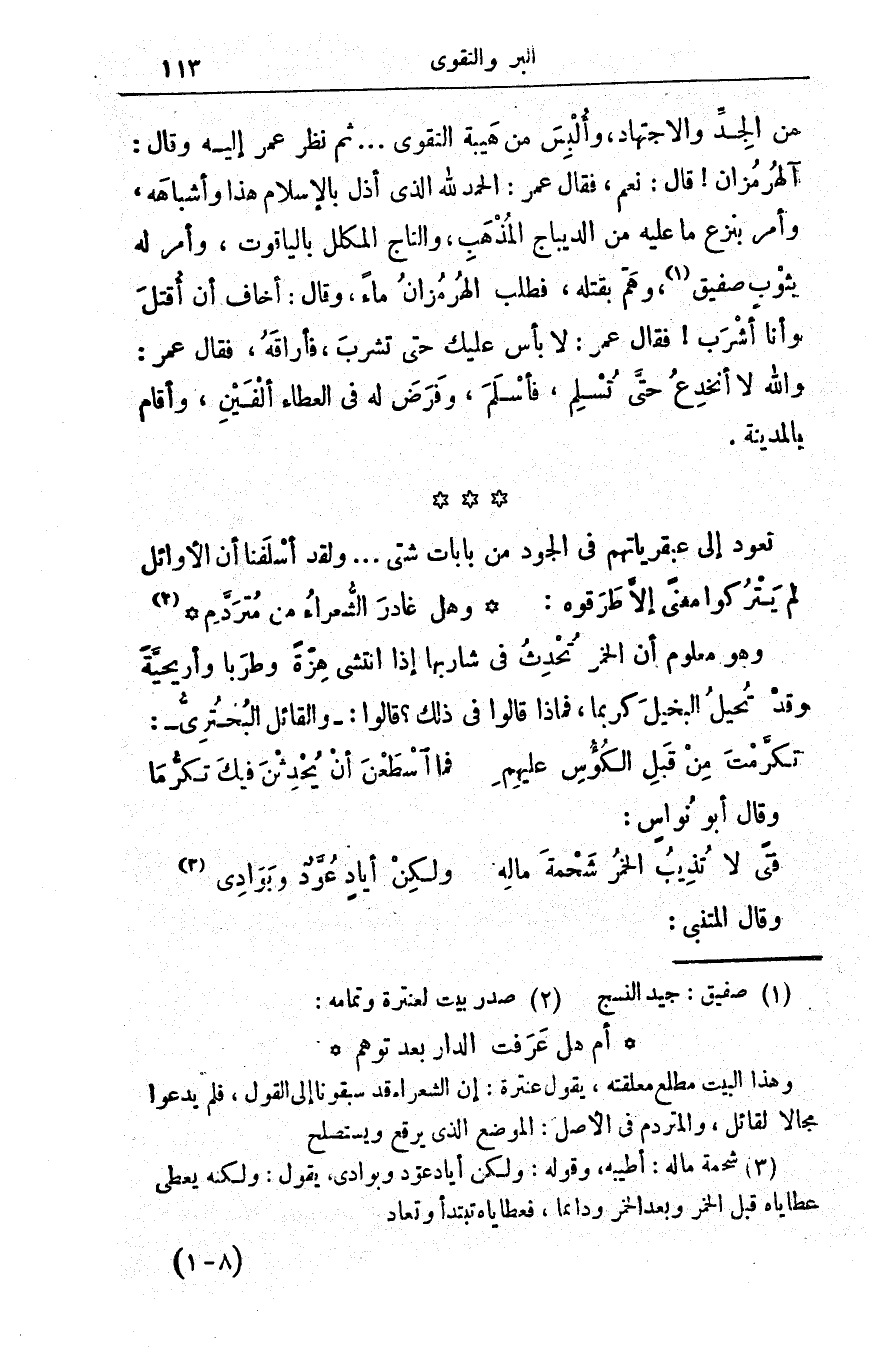 البر والتقوى ١١٣
من الجِدِّ والاجتهاد، وأُلْبِسَ من هَيبة التقوى ... ثم نظر عمر إليه وقال :
آلهُرمُزان ! قال : نعم ، فقال عمر : الحمد لله الذى أذل بالإسلام هذا وأشباهَه ،
وأمر بنزع ما عليه من الديباج المُذْهَبِ، والتاج المكلل بالياقوت ، وأمر له
بثوْبٍ صفيق (١)، وهَمّ بقتله ، فطلب الهُرمُزانُ ماءً، وقال : أخاف أن أُقتلَ
وأنا أشْرَب ! فقال عمر : لا بأس عليك حتى تشربَ ، فأراقَهُ ، فقال عمر :
والله لا أنخدِعُ حتَّى تُسْلِم ، فأسْلَمَ ، وفَرَضَ له فى العطاء ألْفَيْنِ ، وأقام
بالمدينة .
* * *
نعود إلى عبقرياتهم فى الجود من بابات شتى ... ولقد أسْلَفنا أن الأوائل
لم يَتْرُكوا معنًى إلاَّ طَرَقوه : * وهل غادرَ الشُّعراءُ من مُتَرَدَّمِ * (٢)
وهو معلوم أن الخمر تُحْدِثُ فى شاربها إذا انتشى هِزّةً وطرَبا وأريحيَّةً
وقدْ تُحيلُ البخيلَ كريما ، فماذا قالوا فى ذلك ؟ قالوا : ـ والقائل البُحْتُرِىُّ ـ :
تكرَّمْتَ مِنْ قَبلِ الكُؤُسِ عليهِمِ فما اَسْطَعْنَ أنْ يُحْدِثْنَ فيكَ تكرُّمَا
وقال أبو نُواسٍ :
فتًى لا تُذِيبُ الخمرُ شَحْمةَ مالِه ولكِنْ أيادٍ عُوَّدٌ وبَوَادِى (٣)
وقال المتنبى :
(١) صفيق : جيد النسج (٢) صدر بيت لعنترة وتمامه :
* أم هل عَرَفت الدار بعد توهم *
وهذا البيت مطلع معلقته ، يقول عنترة : إن الشعراء قد سبقونا إلى القول ، فلم يدعوا
مجالا لقائل ، والمتردم فى الأصل : الموضع الذى يرقع ويستصلح
(٣) شحمة ماله : أطيبه، وقوله : ولكن أياد عوّد وبوادى، يقول : ولكنه يعطى
عطاياه قبل الخمر وبعد الخمر ودائما ، فعطاياه تبتدأ وتعاد
(٨ – ١)